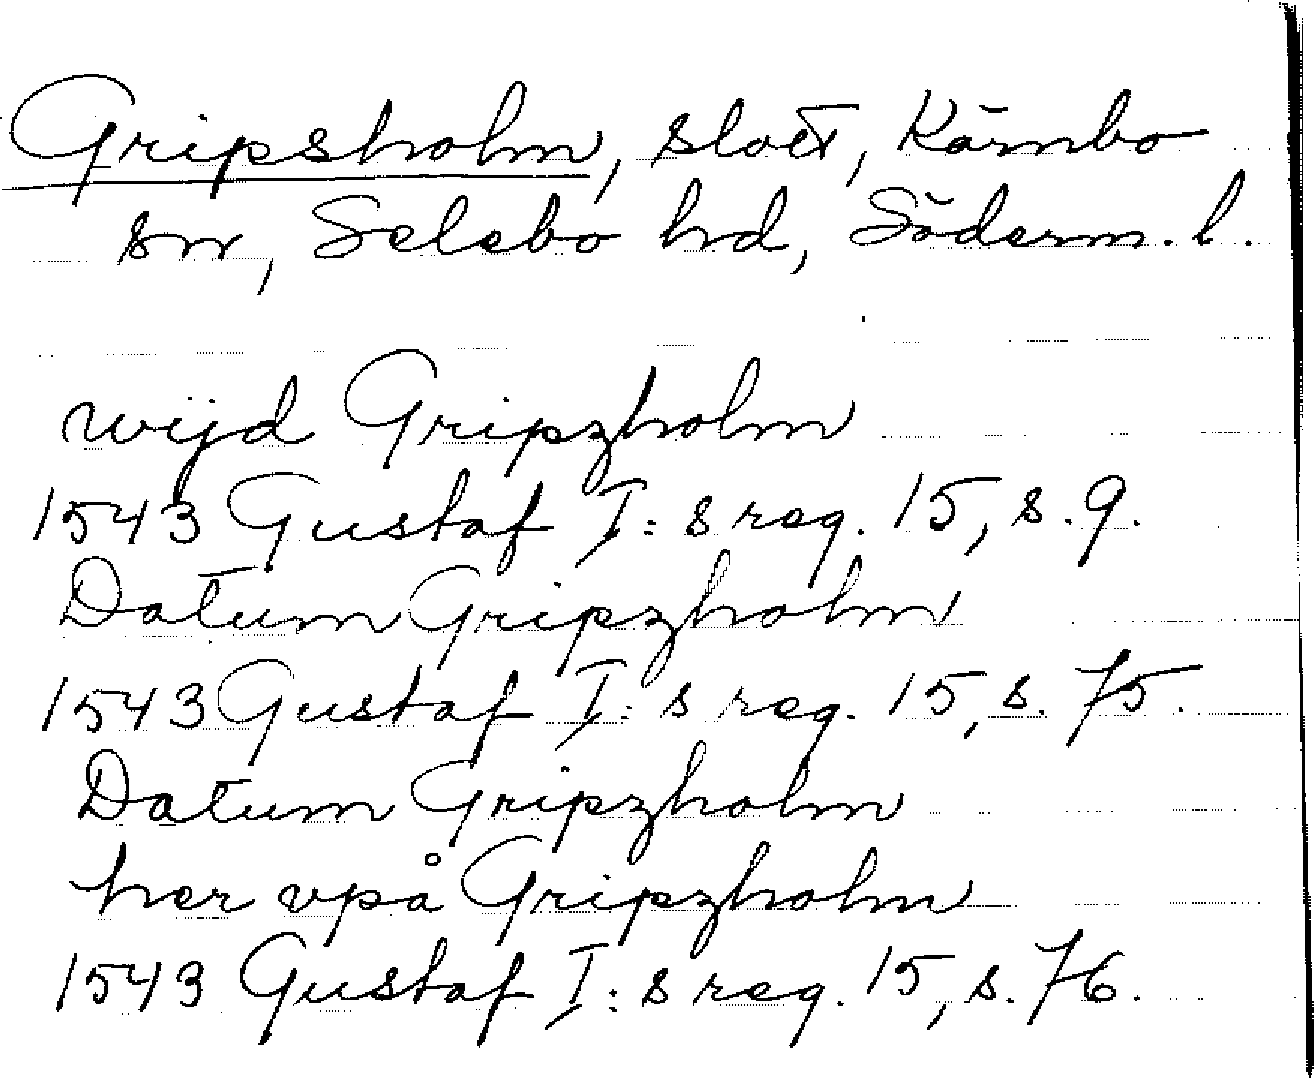 Gripsholm, slott, Kärnbo
sn, Selebo hd, Söderm. l.
wijd Gripzholm
1543 Gustaf I:s reg. 15, s. 9.
Datum Gripzholm
1543 Gustaf I:s reg. 15, s. 75.
Datum Gripzholm
her vpå Gripzholm
1543 Gustaf I:s reg. 15, s. 76.